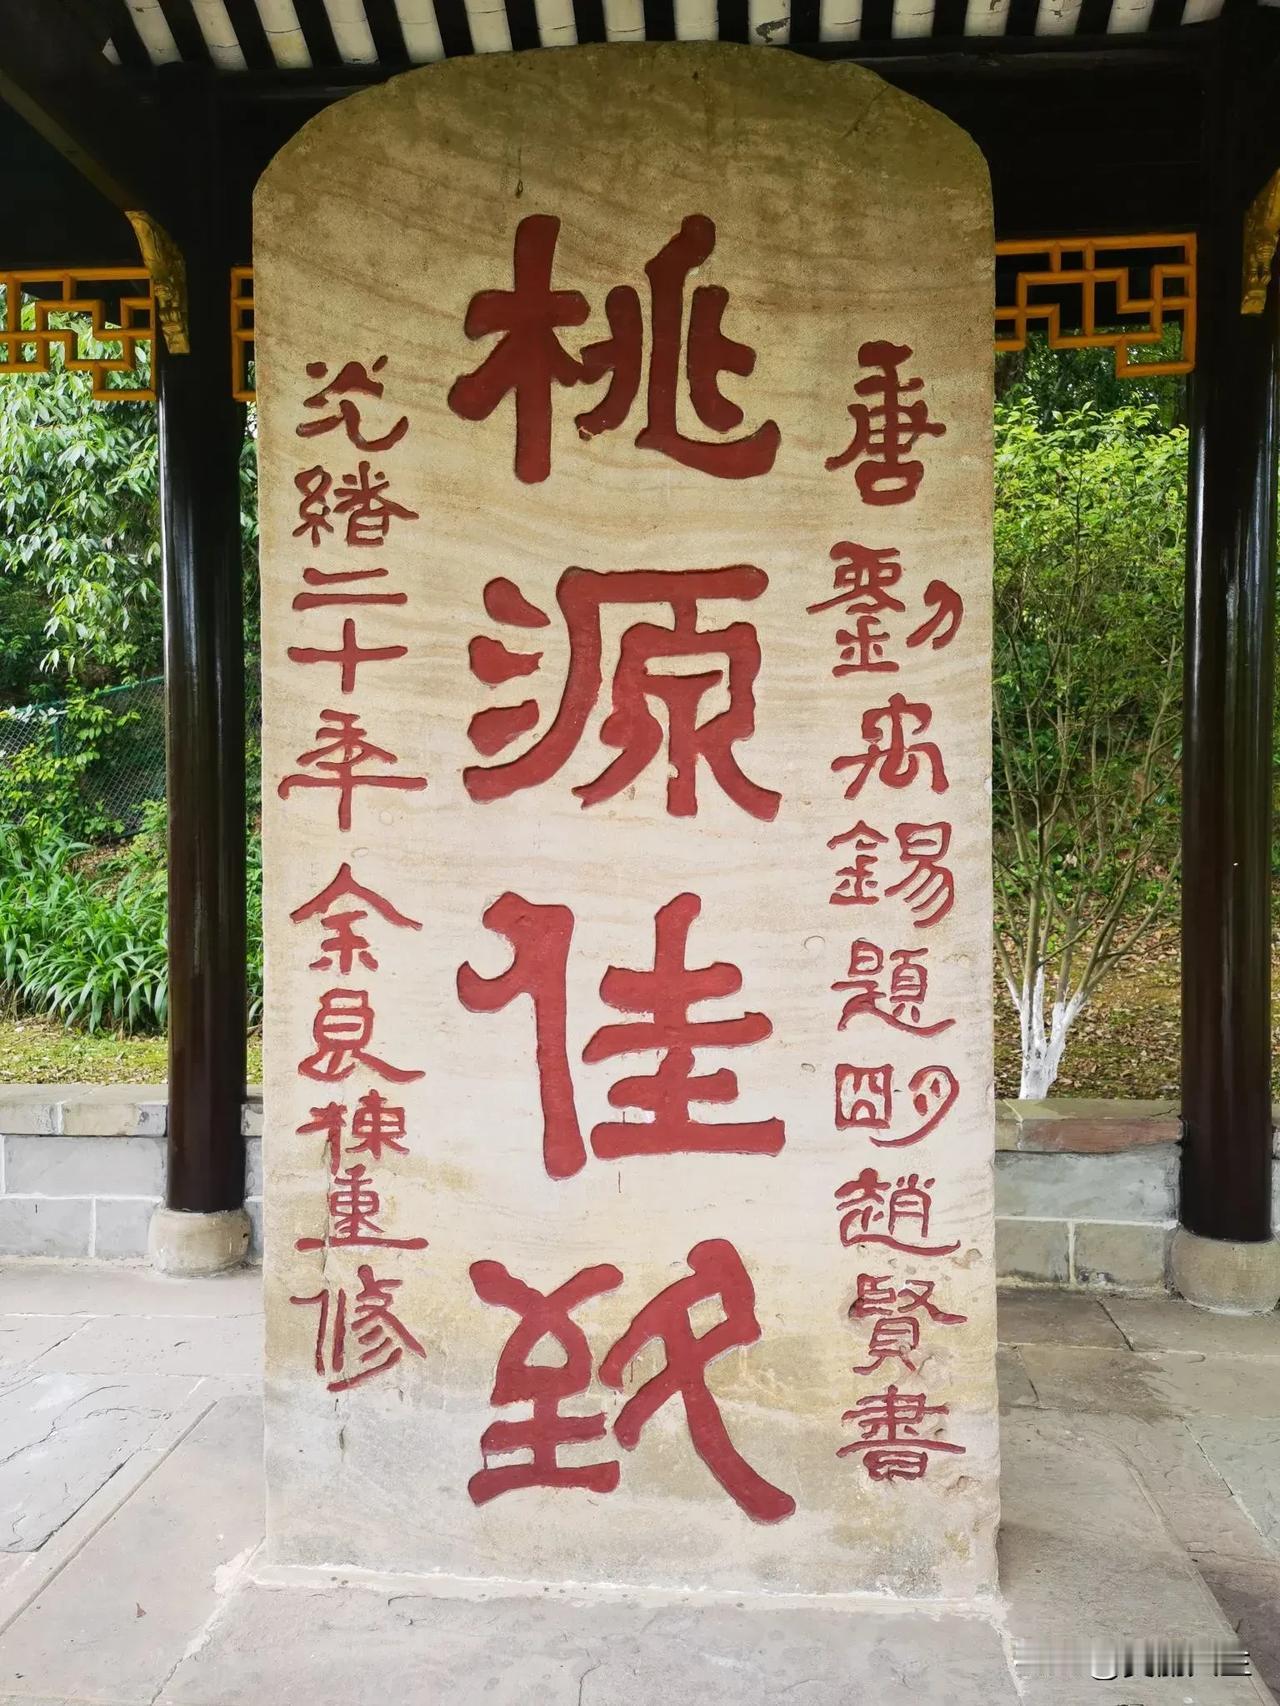 唐劉禹錫題明趙賢書
桃源佳致
光緒二十年余良棟重修